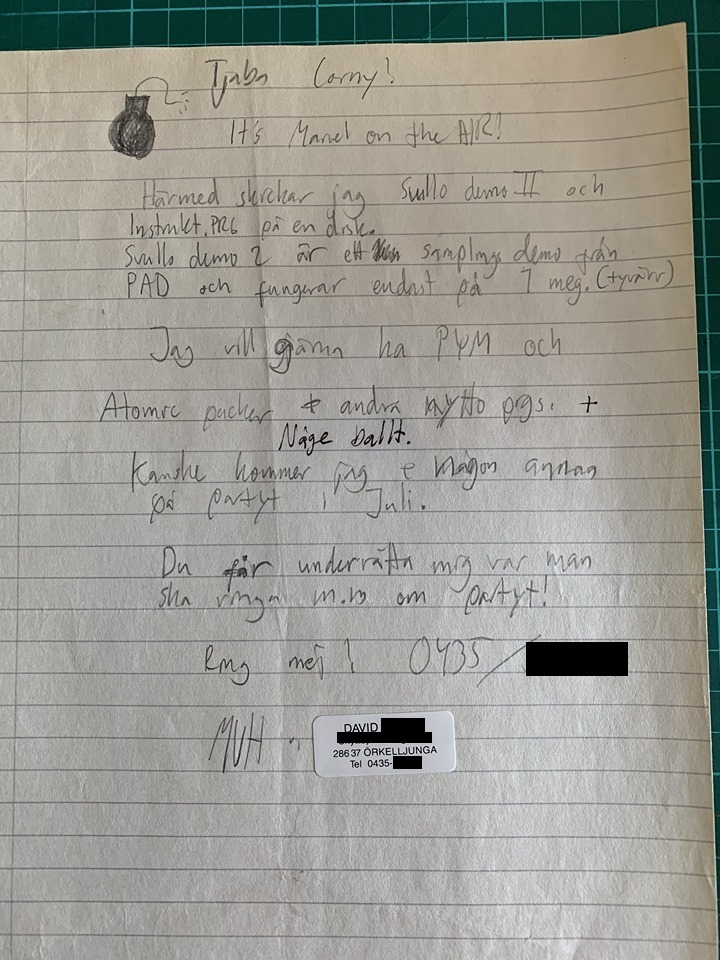 Tjabs Corny!
It's Marvel on the AIR!
Härmed skickar jag Svullo demo II och
Instrukt.PRG på en disk.
Svullo demo 2 är ett samplings demo från
PAD och fungerar endast på 1 meg. (tyvärr)
Jag vill gjärna ha PYM och
Atomic packer + andra nytto prgs. +
Någe ballt.
Kanske kommer jag + någon annan
på partyt i Juli.
Du får underrätta mig var man
ska ringa m.m om partyt!
Ring mej! 0435/
MVH:
DAVID
286 37 ÖRKELLJUNGA
Tel 0435-